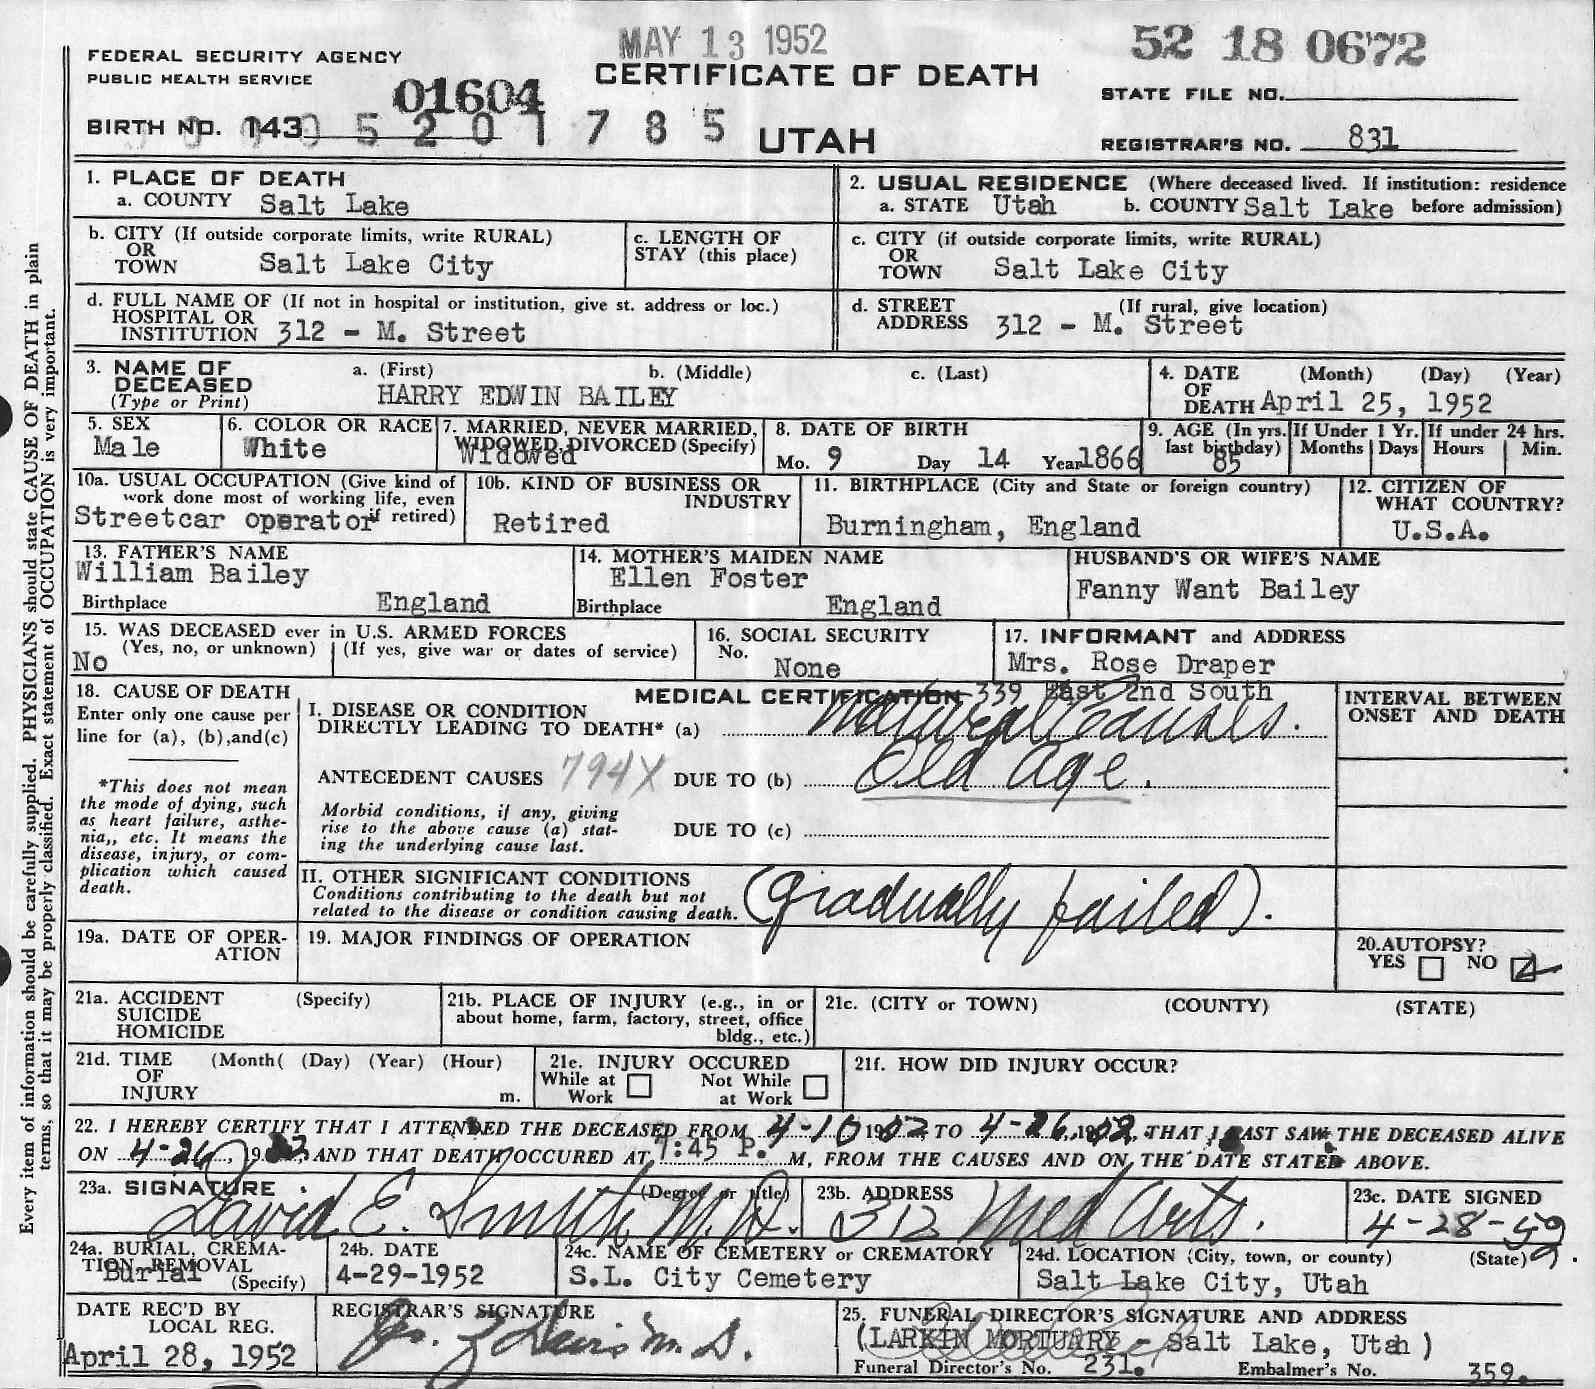 MAY 13 1952
52 18 0672
FEDERAL SECURITY AGENCY
PUBLIC HEALTH SERVICE
CERTIFICATE OF DEATH
01604
STATE FILE NO.
BIRTH NO. 143
5 2 0 1 7 8 5
UTAH
REGISTRAR'S NO. 831
1. PLACE OF DEATH
a. COUNTY Salt Lake
2. USUAL RESIDENCE (Where deceased lived. If institution: residence
a. STATE Utah b. COUNTY Salt Lake before admission)
b. CITY (If outside corporate limits, write RURAL)
OR
TOWN Salt Lake City
c. LENGTH OF
STAY (this place)
c. CITY (if outside corporate limits, write RURAL)
OR
TOWN Salt Lake City
d. FULL NAME OF (If not in hospital or institution, give st. address or loc.)
HOSPITAL OR
INSTITUTION 312 - M. Street
d. STREET (If rural, give location)
ADDRESS 312 - M. Street
3. NAME OF a. (First) b. (Middle) c. (Last)
DECEASED
(Type or Print) HARRY EDWIN BAILEY
4. DATE (Month) (Day) (Year)
OF
DEATH April 25, 1952
5. SEX
Male
6. COLOR OR RACE
White
7. MARRIED, NEVER MARRIED,
WIDOWED, DIVORCED (Specify)
Widowed
8. DATE OF BIRTH
Mo. 9 Day 14 Year 1866
9. AGE (In yrs.
last birthday)
85
If Under 1 Yr.
Months Days
If under 24 hrs.
Hours Min.
10a. USUAL OCCUPATION (Give kind of
work done most of working life, even
if retired)
Streetcar operator
10b. KIND OF BUSINESS OR
INDUSTRY
Retired
11. BIRTHPLACE (City and State or foreign country)
Burningham, England
12. CITIZEN OF
WHAT COUNTRY?
U.S.A.
13. FATHER'S NAME
William Bailey
Birthplace England
14. MOTHER'S MAIDEN NAME
Ellen Foster
Birthplace England
HUSBAND'S OR WIFE'S NAME
Fanny Want Bailey
15. WAS DECEASED ever in U.S. ARMED FORCES
(Yes, no, or unknown) (If yes, give war or dates of service)
No
16. SOCIAL SECURITY
No.
None
17. INFORMANT and ADDRESS
Mrs. Rose Draper
339 East 2nd South
18. CAUSE OF DEATH
Enter only one cause per
line for (a), (b),and(c)
*This does not mean
the mode of dying, such
as heart failure, asthe-
nia,, etc. It means the
disease, injury, or com-
plication which caused
death.
MEDICAL CERTIFICATION
I. DISEASE OR CONDITION
DIRECTLY LEADING TO DEATH* (a) Natural Causes.
ANTECEDENT CAUSES 794X DUE TO (b) Old Age.
Morbid conditions, if any, giving
rise to the above cause (a) stat-
ing the underlying cause last.
DUE TO (c)
INTERVAL BETWEEN
ONSET AND DEATH
II. OTHER SIGNIFICANT CONDITIONS
Conditions contributing to the death but not
related to the disease or condition causing death.
(gradually failed).
19a. DATE OF OPER-
ATION
19. MAJOR FINDINGS OF OPERATION
20.AUTOPSY?
YES NO
21a. ACCIDENT (Specify)
SUICIDE
HOMICIDE
21b. PLACE OF INJURY (e.g., in or
about home, farm, factory, street, office
bldg., etc.)
21c. (CITY or TOWN) (COUNTY) (STATE)
21d. TIME (Month( (Day) (Year) (Hour)
OF
INJURY m.
21e. INJURY OCCURED
While at Work
Not While at Work
21f. HOW DID INJURY OCCUR?
22. I HEREBY CERTIFY THAT I ATTENDED THE DECEASED FROM 4-10 1952 TO 4-26, 1952, THAT I LAST SAW THE DECEASED ALIVE
ON 4-26, 1952, AND THAT DEATH OCCURED AT 7:45 P. M, FROM THE CAUSES AND ON THE DATE STATED ABOVE.
23a. SIGNATURE (Degree or title)
David E. Smith M.D.
23b. ADDRESS
312 Med Arts.
23c. DATE SIGNED
4-28-52
24a. BURIAL, CREMA-
TION REMOVAL
(Specify)
Burial
24b. DATE
4-29-1952
24c. NAME OF CEMETERY or CREMATORY
S.L. City Cemetery
24d. LOCATION (City, town, or county) (State)
Salt Lake City, Utah
DATE REC'D BY
LOCAL REG.
April 28, 1952
REGISTRAR'S SIGNATURE
25. FUNERAL DIRECTOR'S SIGNATURE AND ADDRESS
(LARKIN MORTUARY - Salt Lake, Utah)
Funeral Director's No. 231. Embalmer's No. 359.
Every item of information should be carefully supplied. PHYSICIANS should state CAUSE OF DEATH in plain
terms, so that it may be properly classified. Exact statement of OCCUPATION is very important.